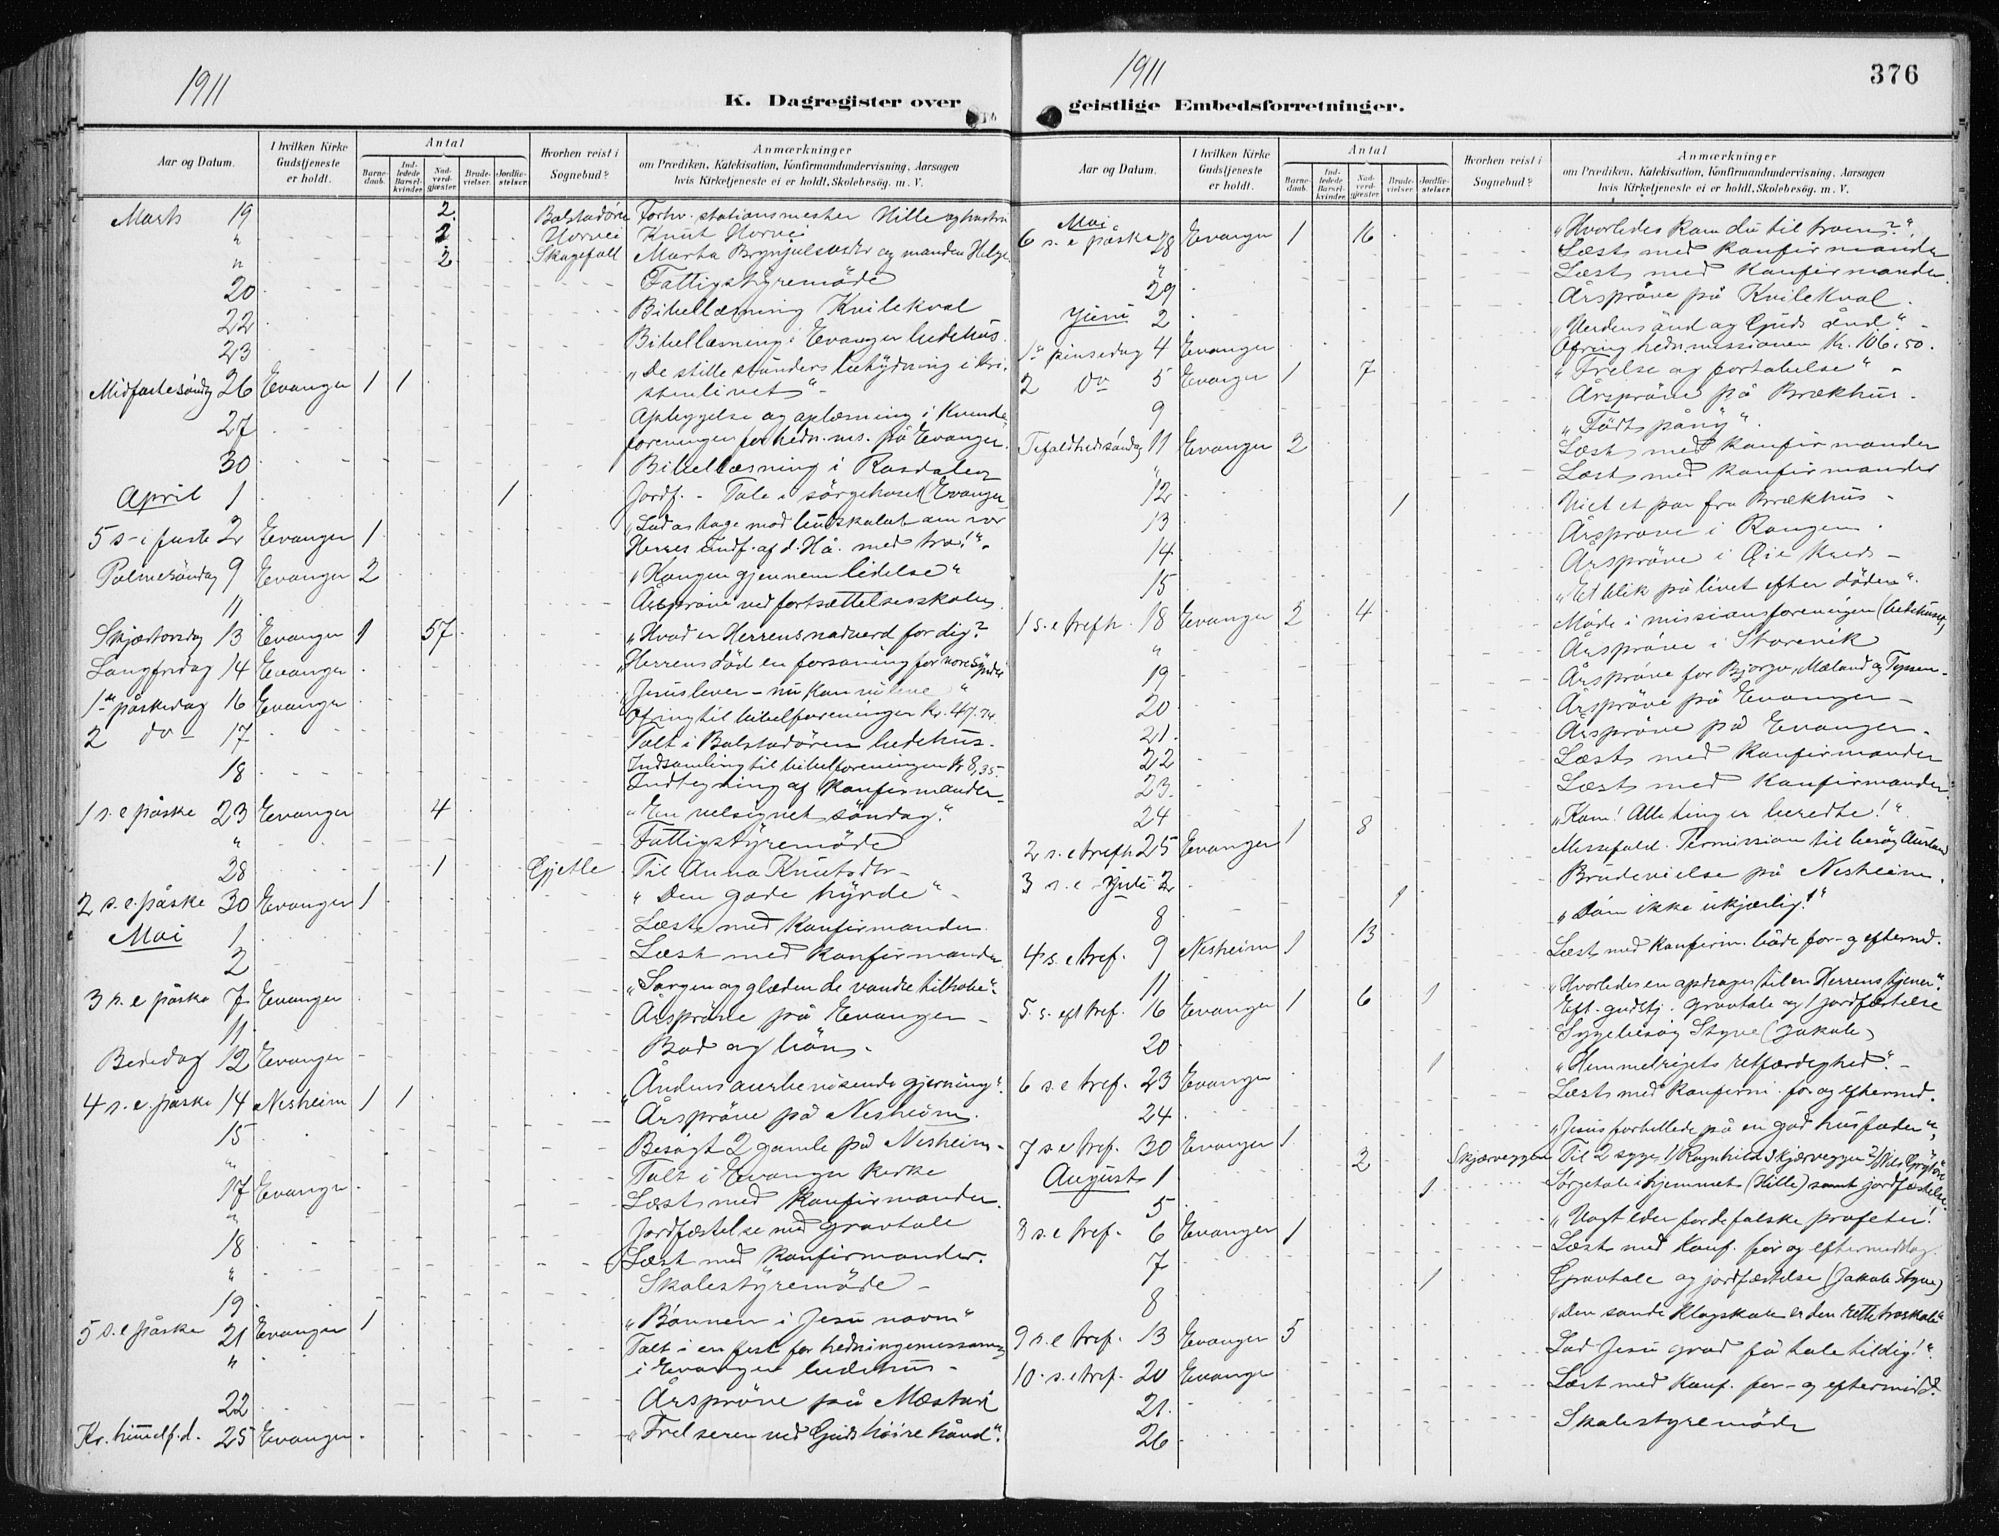 1911
K. Dagregister over
Aar og Datum.
I hvilken Kirke Gudstjeneste er holdt.
Antal
Barnedaab.
Indledede Barselkvinder.
Nadverdgjæster.
Brudevielser.
Jordfæstelser.
Hvorhen reist i Sognebud?
Anmærkninger
om Prædiken, Katekisation, Konfirmandundervisning, Aarsagen
hvis Kirketjeneste ei er holdt, Skolebesøg. m. V.
Marts 19 2 Bolstadören Forhv. stationsmester Hille og hustru
" 2 Horvei Knut Horvei
" 2 Skagefall Marta Brynjulsdatter og manden Helge
20 Fattigstyremöde
22 Bibellæsning Kvilekval
23 Bibellæsning i Evanger bedehus.
Midfastesöndag 26 Evanger 1 1 "De stille stunders betydning i kristenlivet"
27 Opbyggelse og oplæsning i Kvindeforeningen for hedn.mis. på Evanger.
30 Bibellæsning i Rasdalen
April 1 1 Jordf. - Tale i sörgehuset (Evanger)
5 s. i faste 2 Evanger 1 Herres med tro!"
Palmesöndag 9 Evanger 2 "Kongen gjennem lidelse"
11 Årspröve ved fortsættelsesskolen
Skjærtorsdag 13 Evanger 1 57 "Hvad er Herrens nadverd for dig?"
Langfredag 14 Evanger "Herrens död en forsoning for vore synder"
1ste påskedag 16 Evanger "Jesus lever - nu kan vi leve"
Ofring til bibelforeningen Kr. 47.74
2 do 17 Talt i Bolstadören bedehus.
Indsamling til bibelforeningen Kr 8,35.
18 Indtegning af konfirmander
1 s. e påske 23 Evanger 4 "En velsignet söndag."
" Fattigstyremöde
28 1 Gjetle Til Anna Knutsdtr
2 s. e. påske 30 Evanger 1 "Den gode hyrde"
Mai 1 Læst med konfirmander
2 Læst med konfirmander
3 s. e påske 7 Evanger "Sorgen og glæden de vandre tilhobe".
11 Årspröve på Evanger
Bededag 12 Evanger Bod og bön
4 s. e. påske 14 Nesheim 1 1 "Åndens gjerning".
15 Årspröve på Nesheim.
" Besögt 2 gamle på Nesheim
17 Evanger Talt i Evanger kirke
" Læst med konfirmander.
18 Jordfæstelse med gravtale
" Læst med konfirmander.
19 Skolestyremöde
5 s. e påske 21 Evanger 1 "Bönnen i Jesu navn"
" Talt i en fest for hedningemissionen
i Evanger bedehus
22 Årspröve på Mæstad
Kr. himmelf.d. 25 Evanger "Frelseren ved Guds höire hånd".
1911
376
geistlige Embedsforretninger.
Aar og Datum.
I hvilken Kirke Gudstjeneste er holdt.
Antal
Barnedaab.
Indledede Barselkvinder.
Nadverdgjæster.
Brudevielser.
Jordfæstelser.
Hvorhen reist i Sognebud?
Anmærkninger
om Prædiken, Katekisation, Konfirmandundervisning, Aarsagen
hvis Kirketjeneste ei er holdt, Skolebesøg. m. V.
Mai
6 s. e påske 28 Evanger 1 16 "Hvorledes kom du til troen?"
" Læst med konfirmander
29 Læst med konfirmander
Juni 2 Årspröve på Kvilekval
1ste pinsedag 4 Evanger "Verdens ånd og Guds ånd".
Ofring hedn.missionen Kr. 106.50.
2 do 5 Evanger 1 7 "Frelse og fortabelse"
9 Årspröve på Brækhus
Trefoldhedsöndag 11 Evanger 2 "Födt påny".
" Læst med konfirmander
12 Læst med konfirmander
13 1 Viet et par fra Brækhus
14 Årspröve i Rongen
15 Årspröve i Öie Kreds
1 s. e trefh. 18 Evanger 2 4 "Et blik på livet efter döden".
" Möde i missionsforeningen (bedehuset)
19 Årspröve i Storevik
20 Årspröve for Bjorgo, Mæland og Tyssen
21. Årspröve på Evanger
22 Årspröve på Evanger.
23. Læst med konfirmander
24 Læst med konfirmander
2 s. e trefh 25 Evanger 1 8 "Kom! Alle ting er beredte!"
3 s. e Juli 2 Messefald. Permission til besög Aurland
8 1 Brudevielse på Nesheim.
4 s. e tref. 9 Nesheim 1 13 "Döm ikke ukjærlig!"
11 Læst med konfirm. både for- og eftermd.
5. s. eft tref. 16 Evanger 1 6 1 "Hvorledes en opdrages til en Herrens tjener".
Eft. gudstj. gravtale og 1 jordfæstelse
20 Sygebesög Styve (Jakob)
6 s. e tref. 23 Evanger 1 "Himmelrigets retfærdighed".
24 Læst med konfirm. for og eftermd.
7 s e tref. 30 Evanger 1 "Jesus forbillede på en god husfader",
August 1 2 Skjærveggen Til 2 syge. 1/ Ragnhild Skjærveggen 2/ Nils
5 1 Sörgetale i hjemmet (Hille) samt jordfæstelse.
8 s. e tref. 6 Evanger 1 "Vogt eder for de falske profeter!
7 Læst med konf. för og eftermiddag.
8 1 Gravtale og jordfæstelse (Jakob Styve)
9 s. e tref. 13 Evanger 5 "Den sande klogskab er den rette troskab"
10. s. e tref. 20 Evanger Lad Jesu graad få tale til dig!"
21. Læst med konf. for- og eftermidd.
26 Skolestyremöde